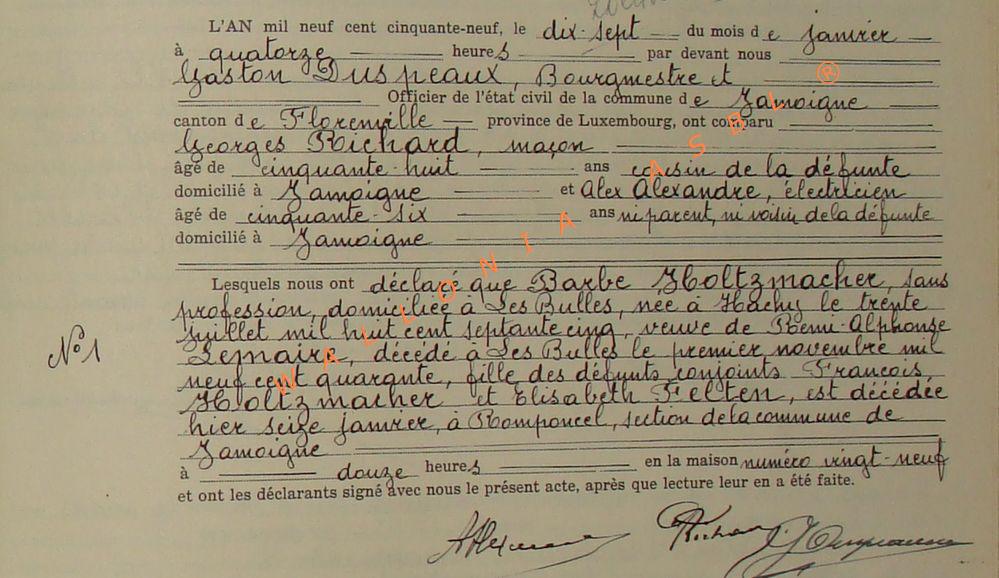 L'AN mil neuf cent cinquante-neuf, le dix-sept du mois de janvier
à quatorze heures par devant nous
Gaston Duspeaux, Bourgmestre et
Officier de l'état civil de la commune de Jamoigne
canton de Florenville province de Luxembourg, ont comparu
Georges Richard, maçon
âgé de cinquante-huit ans cousin de la défunte
domicilié à Jamoigne et Alex Alexandre, électricien
âgé de cinquante-six ans ni parent, ni voisin de la défunte
domicilié à Jamoigne
Lesquels nous ont déclaré que Barbe Holtzmacher, sans
profession, domiciliée à Les Bulles, née à Hachy le trente
juillet mil huit cent septante cinq, veuve de Remi-Alphonse
N° 1
Lemaire, décédé à Les Bulles le premier novembre mil
neuf cent quarante, fille des défunts conjoints François,
Holtzmacher et Elisabeth Felten, est décédée
hier seize janvier, à Romponcel, section de la commune de
Jamoigne
à douze heures en la maison numéro vingt-neuf
et ont les déclarants signé avec nous le présent acte, après que lecture leur en a été faite.
WALLONIA ASBL ®